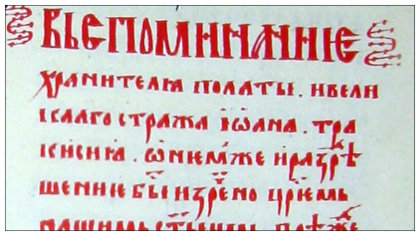 ВЬСПОМИНАНИѤ
хранителꙗ полаты . и вели
каго стража іѡана . тра
кисиꙗ . ѡ нем же и разрѣ
шениѥ бы изрено